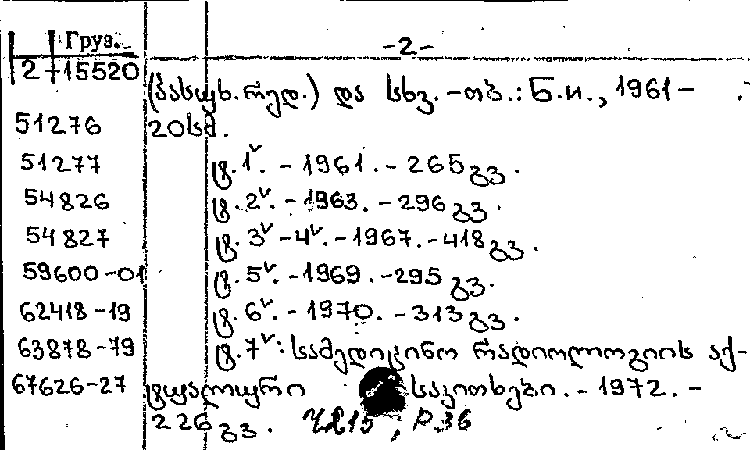 Груз. -2-
2-15520
(პასუხ.რედ.) და სხვ. -თბ.: Б.и., 1961-
51276 20სმ.
51277 ტ.1ᵛ. - 1961. - 265გვ.
54826 ტ.2ᵛ. - 1963. - 296გვ.
54827 ტ.3ᵛ-4ᵛ. - 1967. - 418გვ.
59600-01 ტ.5ᵛ. - 1969. - 295გვ.
62418-19 ტ.6ᵛ. - 1970. - 313გვ.
63878-79 ტ.7ᵛ: სამედიცინო რადიოლოგიის აქ-
67626-27 ტუალური საკითხები. - 1972. -
226გვ. , Р36